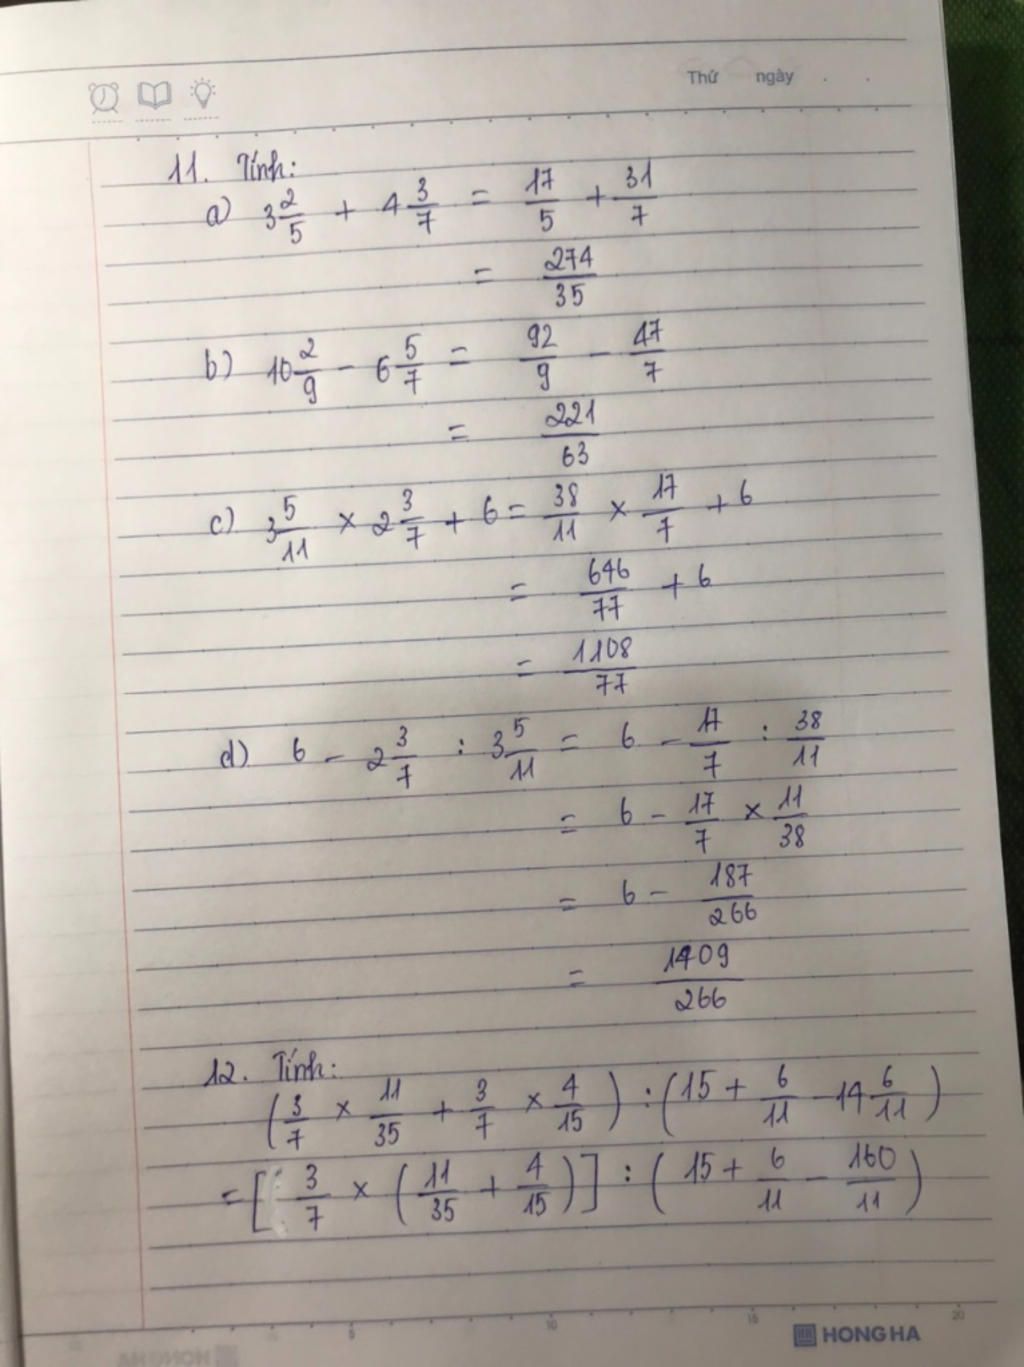 Thứ ngày
11. Tính:
a) 3 2/5 + 4 3/7 = 17/5 + 31/7
= 274/35
b) 10 2/9 - 6 5/7 = 92/9 - 47/7
= 221/63
c) 3 5/11 × 2 3/7 + 6 = 38/11 × 17/7 + 6
= 646/77 + 6
= 1108/77
d) 6 - 2 3/7 : 3 5/11 = 6 - 17/7 : 38/11
= 6 - 17/7 × 11/38
= 6 - 187/266
= 1409/266
12. Tính:
(3/7 × 11/35 + 3/7 × 4/15) : (15 + 6/11 - 14 6/11)
= [3/7 × (11/35 + 4/15)] : (15 + 6/11 - 160/11)
5 10 15 20
HONG HA